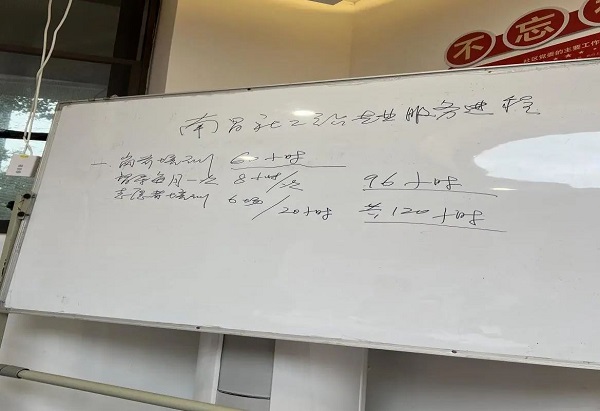 不忘
社区党委的主要工作
南昌社工站专业服务进程
一岗前培训 60小时
督导每月一次 8小时/次 96小时
志愿者培训 6场/20小时 共120小时